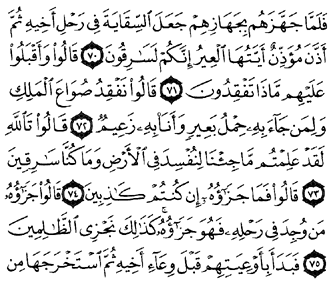 فَلَمَّا جَهَّزَهُم بِجَهَازِهِمْ جَعَلَ السِّقَايَةَ فِي رَحْلِ أَخِيهِ ثُمَّ
أَذَّنَ مُؤَذِّنٌ أَيَّتُهَا الْعِيرُ إِنَّكُمْ لَسَارِقُونَ ٧٠ قَالُوا وَأَقْبَلُوا
عَلَيْهِم مَّاذَا تَفْقِدُونَ ٧١ قَالُوا نَفْقِدُ صُوَاعَ الْمَلِكِ
وَلِمَن جَاءَ بِهِ حِمْلُ بَعِيرٍ وَأَنَا بِهِ زَعِيمٌ ٧٢ قَالُوا تَاللَّهِ
لَقَدْ عَلِمْتُم مَّا جِئْنَا لِنُفْسِدَ فِي الْأَرْضِ وَمَا كُنَّا سَارِقِينَ
٧٣ قَالُوا فَمَا جَزَاؤُهُ إِن كُنتُمْ كَاذِبِينَ ٧٤ قَالُوا جَزَاؤُهُ
مَن وُجِدَ فِي رَحْلِهِ فَهُوَ جَزَاؤُهُ كَذَلِكَ نَجْزِي الظَّالِمِينَ
٧٥ فَبَدَأَ بِأَوْعِيَتِهِمْ قَبْلَ وِعَاءِ أَخِيهِ ثُمَّ اسْتَخْرَجَهَا مِن